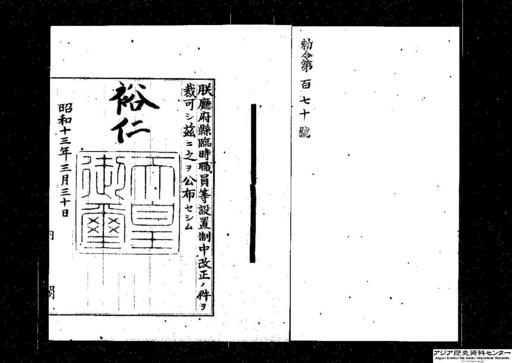 勅令第百七十號
朕廳府縣臨時職員等設置制中改正ノ件ヲ
裁可シ茲ニ之ヲ公布セシム
裕仁
天皇
御璽
昭和十三年三月三十日
内
閣
アジア歴史資料センター
Japan Center for Asian Historical Records